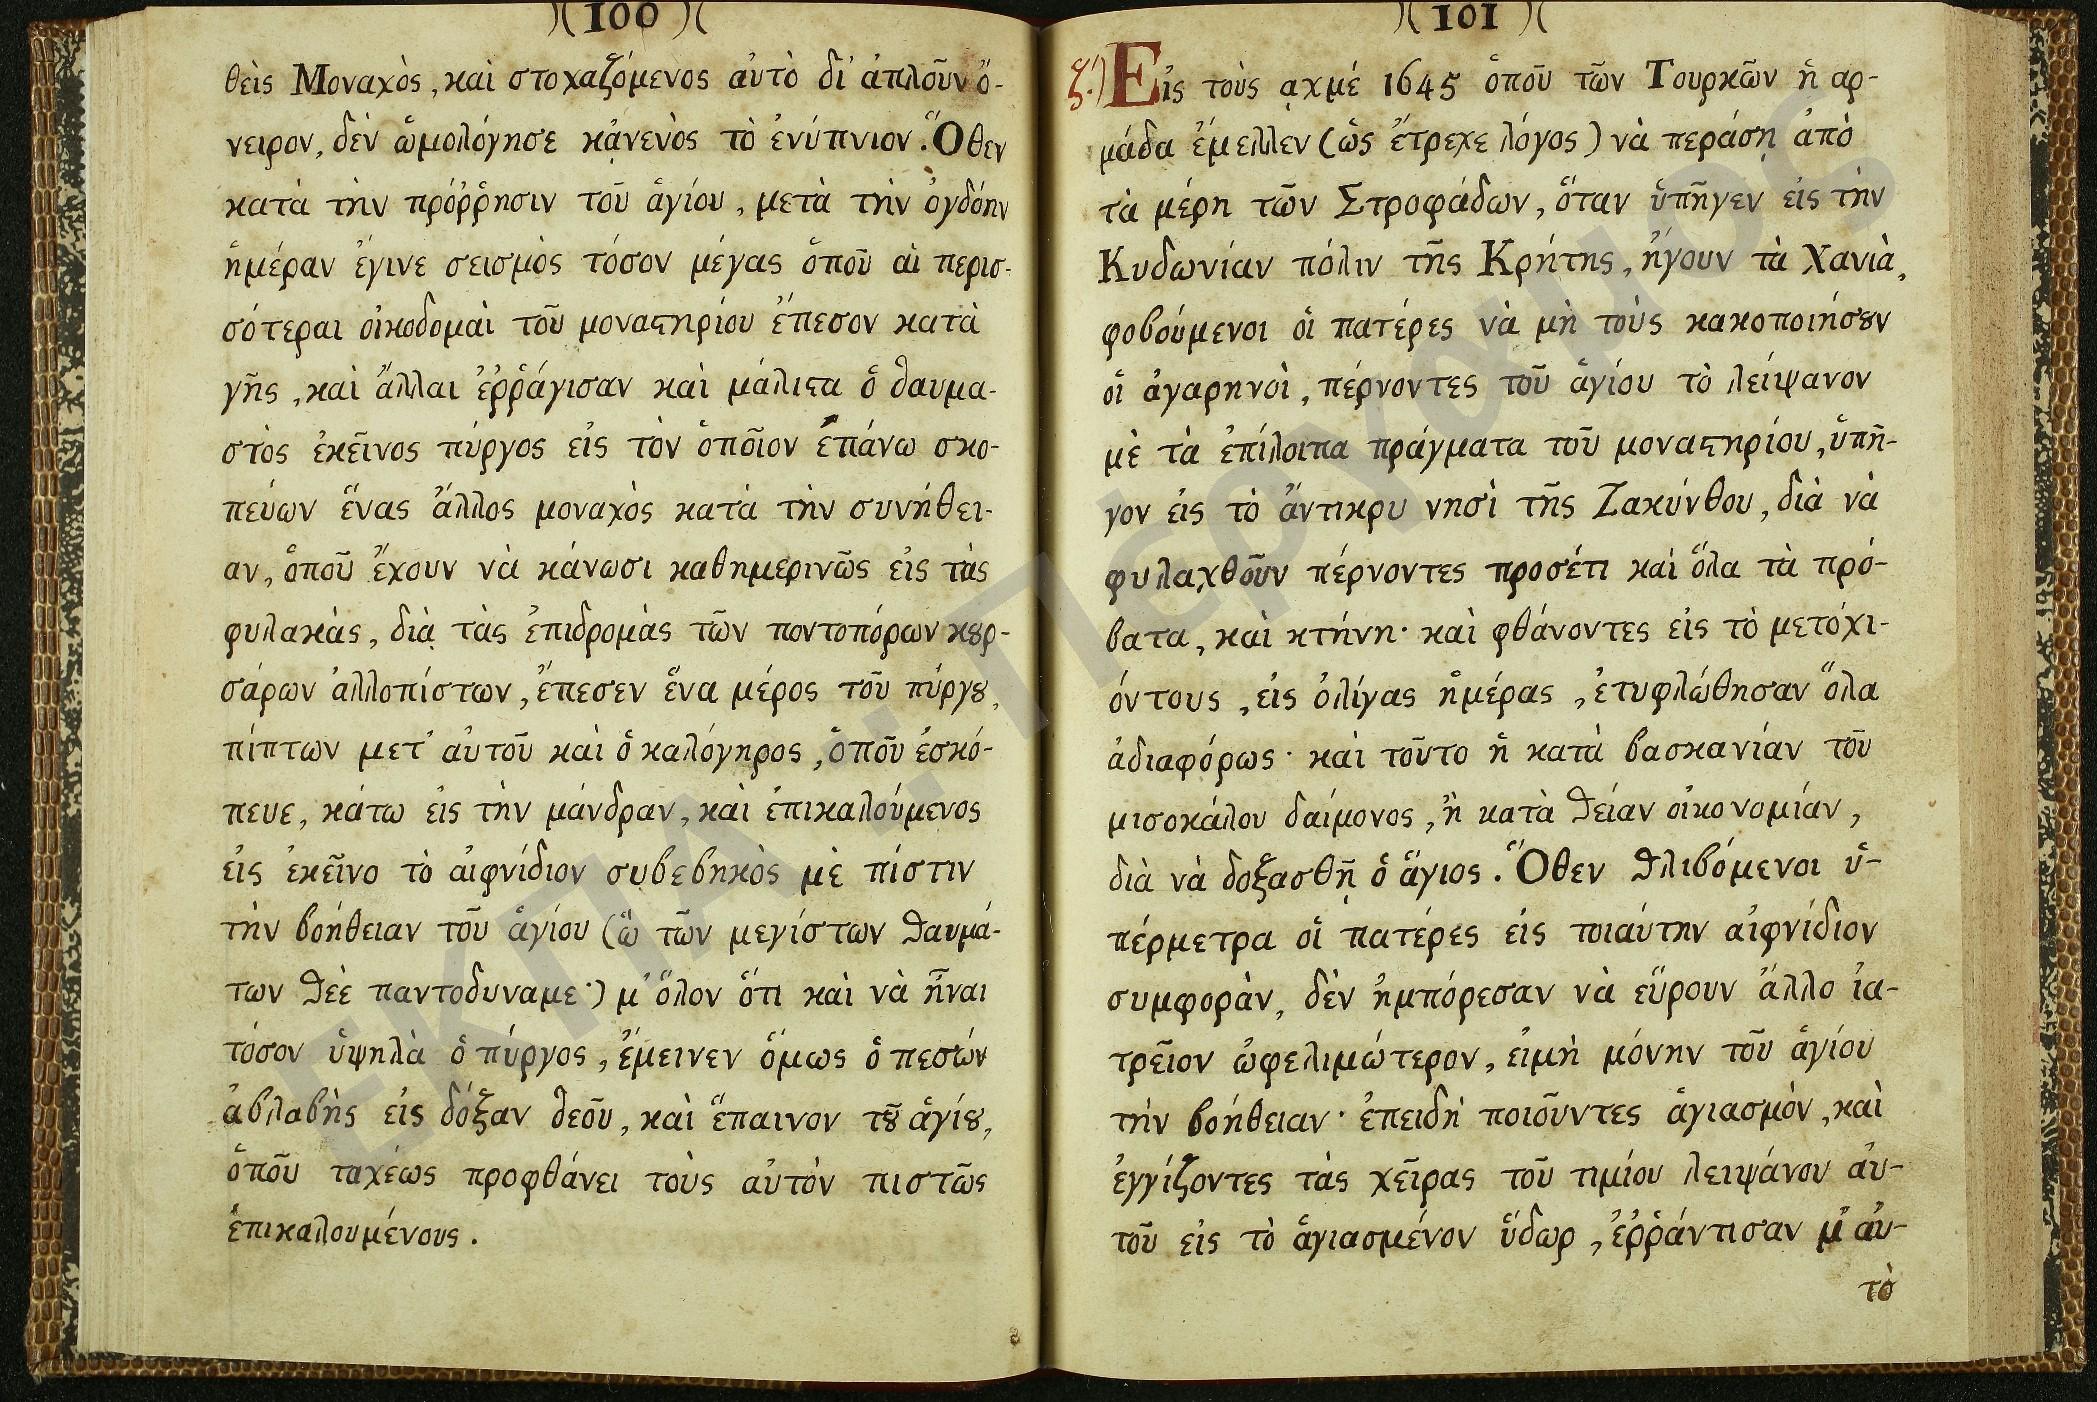 )( 100 )(
θεὶς Μοναχὸς, καὶ στοχαζόμενος αὐτὸ δι' ἁπλοῦν ὄ-
νειρον, δὲν ὡμολόγησε κᾀνενὸς τὸ ἐνύπνιον. Ὅθεν
κατὰ τὴν πρόῤῥησιν τοῦ ἁγίου, μετὰ τὴν ὀγδόην
ἡμέραν ἔγινε σεισμὸς τόσον μέγας ὁποῦ αἱ περισ-
σότεραι οἰκοδομαὶ τοῦ μοναϛηρίου ἔπεσον κατὰ
γῆς, καὶ ἄλλαι ἐῤῥάγισαν καὶ μάλιϛα ὁ θαυμα-
στὸς ἐκεῖνος πύργος εἰς τὸν ὁποῖον ἐπάνω σκο-
πεύων ἕνας ἄλλος μοναχὸς κατὰ τὴν συνήθει-
αν, ὁποῦ ἔχουν νὰ κάνωσι καθημερινῶς εἰς τὰς
φυλακὰς, διὰ τὰς ἐπιδρομὰς τῶν ποντοπόρων κȣρ-
σάρων ἀλλοπίστων, ἔπεσεν ἕνα μέρος τοῦ πύργȣ,
πίπτων μετ' αὐτοῦ καὶ ὁ καλόγηρος, ὁποῦ ἐσκό-
πευε, κάτω εἰς τὴν μάνδραν, καὶ ἐπικαλούμενος
εἰς ἐκεῖνο τὸ αἰφνίδιον συβεβηκὸς μὲ πίστιν
τὴν βοήθειαν τοῦ ἁγίου (ὢ τῶν μεγίστων θαυμά-
των θεὲ παντοδυναμε·) μ' ὅλον ὅτι καὶ νὰ ἦναι
τόσον ὑψηλὰ ὁ πύργος, ἔμεινεν ὅμως ὁ πεσὼν
ἀβλαβὴς εἰς δόξαν θεοῦ, καὶ ἔπαινον τȣ͂ ἁγίȣ,
ὁποῦ ταχέως προφθάνει τοὺς αὐτὸν πιστῶς
ἐπικαλουμένους.
)( 101 )(
ζ.) Εἰς τοὺς αχμέ 1645 ὁποῦ τῶν Τουρκῶν ἡ αρ-
μάδα ἔμελλεν (ὡς ἔτρεχε λόγος) νὰ περάσῃ ἀπὸ
τὰ μέρη τῶν Στροφάδων, ὅταν ὑπῆγεν εἰς τὴν
Κυδωνίαν πόλιν τῆς Κρήτης, ἤγουν τὰ Χανιὰ,
φοβούμενοι οἱ πατέρες νὰ μὴ τοὺς κακοποιήσȣν
οἱ ἀγαρηνοὶ, πέρνοντες τοῦ ἁγίου τὸ λείψανον
μὲ τὰ ἐπίλοιπα πράγματα τοῦ μοναϛηρίου, ὑπῆ-
γον εἰς τὸ ἄντικρυ νησὶ τῆς Ζακύνθου, διὰ νὰ
φυλαχθοῦν πέρνοντες προσέτι καὶ ὅλα τὰ πρό-
βατα, καὶ κτήνη· καὶ φθάνοντες εἰς τὸ μετόχι-
όντους, εἰς ὀλίγας ἡμέρας, ἐτυφλώθησαν ὅλα
ἀδιαφόρως· καὶ τοῦτο ἢ κατὰ βασκανίαν τοῦ
μισοκάλου δαίμονος, ἢ κατὰ θείαν οἰκονομίαν,
διὰ νὰ δοξασθῇ ὁ ἅγιος. Ὅθεν θλιβόμενοι ὑ-
πέρμετρα οἱ πατέρες εἰς τοιαύτην αἰφνίδιον
συμφορὰν, δὲν ἠμπόρεσαν νὰ εὕρουν ἄλλο ἰα-
τρεῖον ὠφελιμώτερον, εἰμὴ μόνην τοῦ ἁγίου
τὴν βοήθειαν· ἐπειδὴ ποιοῦντες ἁγιασμὸν, καὶ
ἐγγίζοντες τὰς χεῖρας τοῦ τιμίου λειψάνου αὐ-
τοῦ εἰς τὸ ἁγιασμένον ὕδωρ, ἐῤῥάντισαν μ' αὐ-
τὸ
ΕΚΠΑ :: Πέργαμος